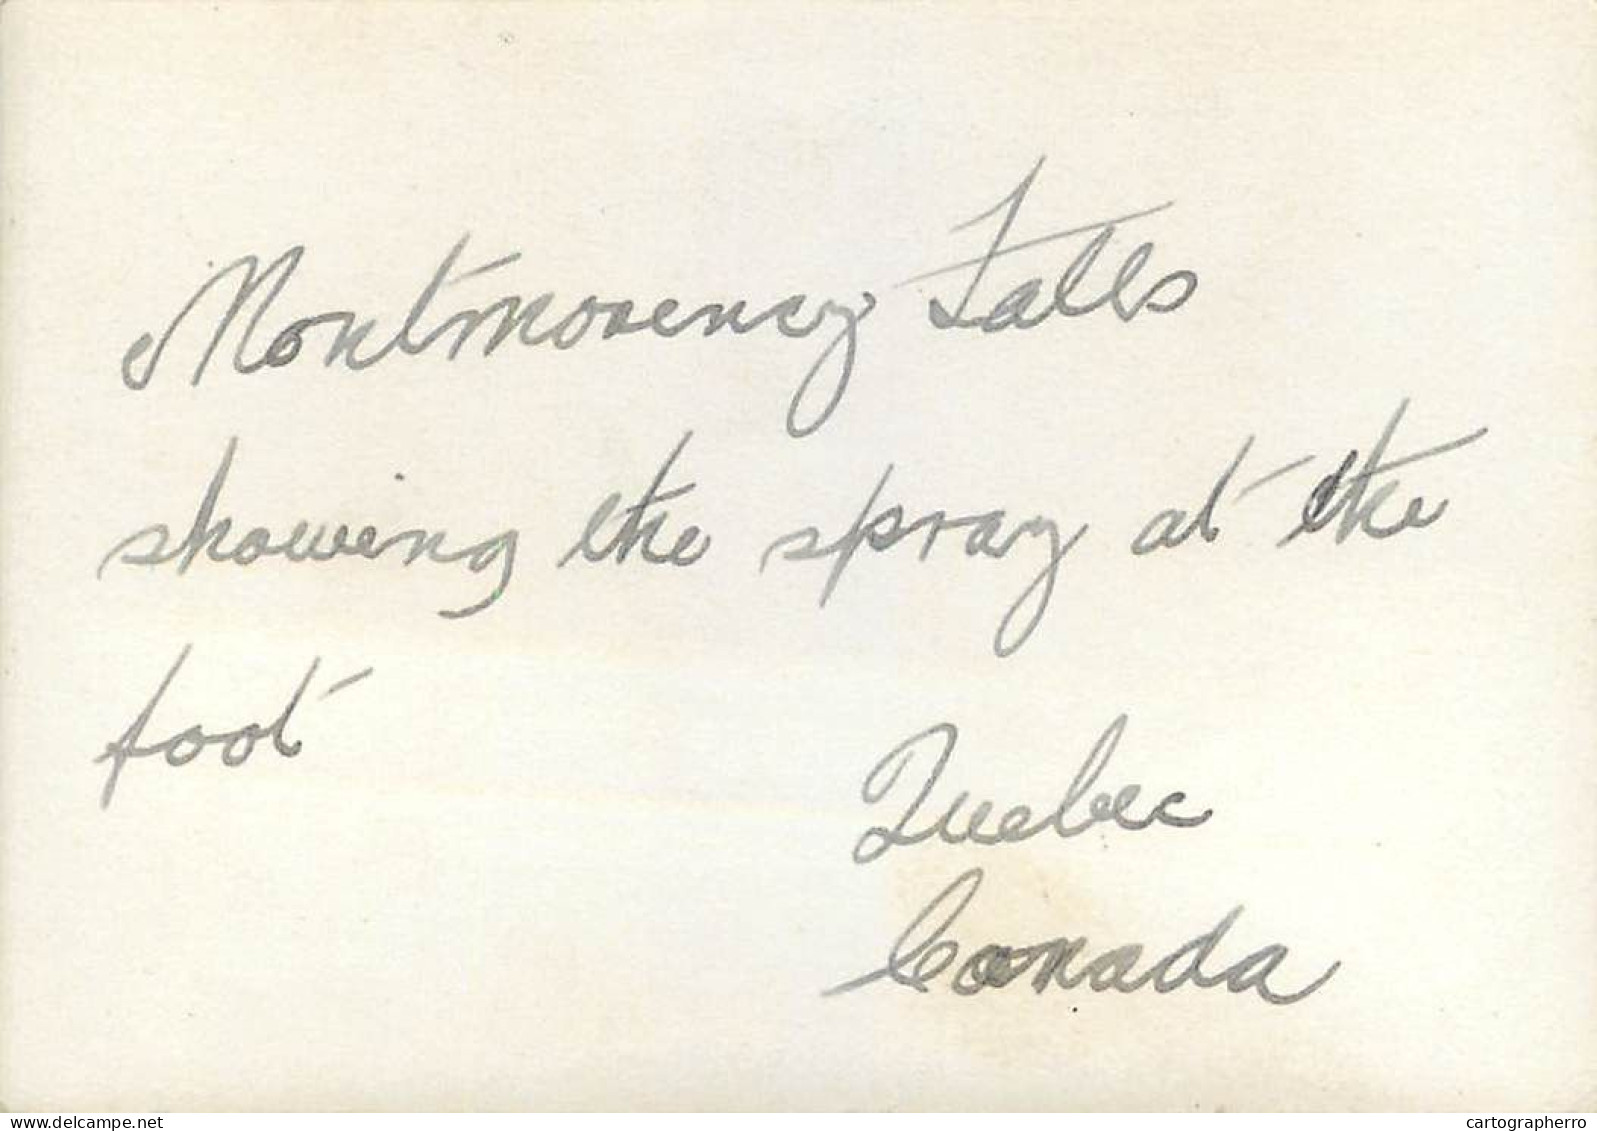 Montmorency Falls
showing the spray at the
foot
Quebec
Canada
delcampe.net
cartographerro